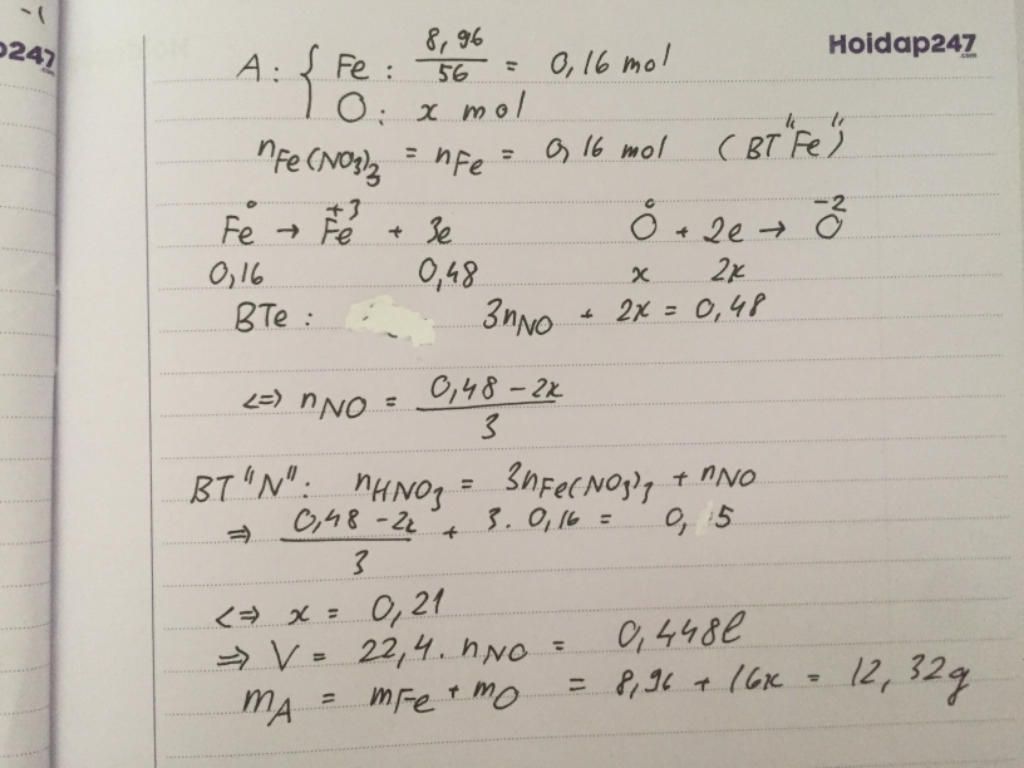 -1
p247
.com
Hoidap247
.com
A: { Fe : 8,96/56 = 0,16 mol
O: x mol
nFe(NO3)3 = nFe = 0,16 mol (BT "Fe")
Fe⁰ → Fe⁺³ + 3e O⁰ + 2e → O⁻²
0,16 0,48 x 2x
BTe : 3nNO + 2x = 0,48
<=> nNO = (0,48 - 2x)/3
BT "N": nHNO3 = 3nFe(NO3)3 + nNO
=> (0,48 - 2x)/3 + 3. 0,16 = 0, 5
<=> x = 0,21
=> V = 22,4. nNO = 0,448l
mA = mFe + mO = 8,96 + 16x = 12,32g